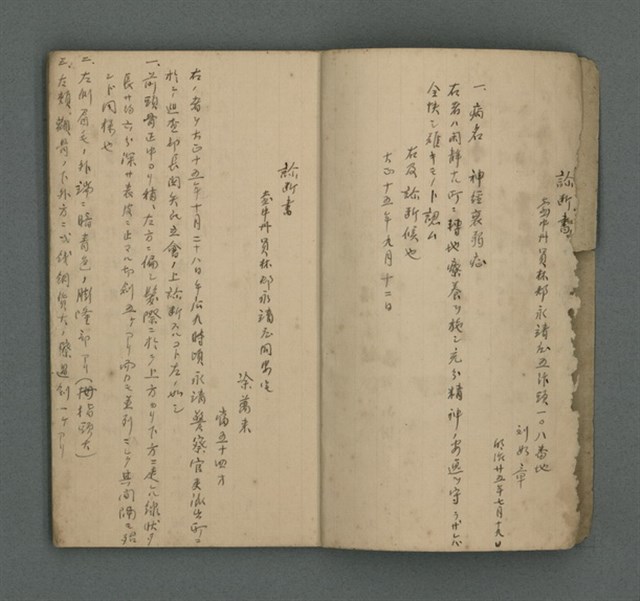 診断書
台中州員林郡永靖庄五汴頭一〇八番地
劉 章
明治廿五年七月十九日
一、病名 神経衰弱症
右者ハ閑静ノ町ニ轉地療養ヲ施シ充分精神ノ安逸ヲ守ラザレバ
全快シ難キモノト認ム
右及診断候也
大正十五年九月十二日
診断書
台中州員林郡永靖庄同安宅
涂萬来
當五十四才
右ノ者ハ大正十五年十月二十八日午后九時頃永靖警察官吏派出所ニ
於テ巡査部長関矢氏立會ノ上診断スルコト左ノ如シ
一、前頭骨正中ヨリ稍々左方ニ偏シ髪際ニ於テ上方ヨリ下方ニ走レル線状ノ
長サ約六分深サ表皮ニ止マル切創五ケアリ而カモ並列ニシテ其間隔モ殆
ンド同様也
二、左側眉毛ノ外端ニ暗青色ノ膨隆部アリ(拇指頭大)
三、左頬顴骨ノ下外方ニ弍銭銅貨大ノ擦過創一ケアリ